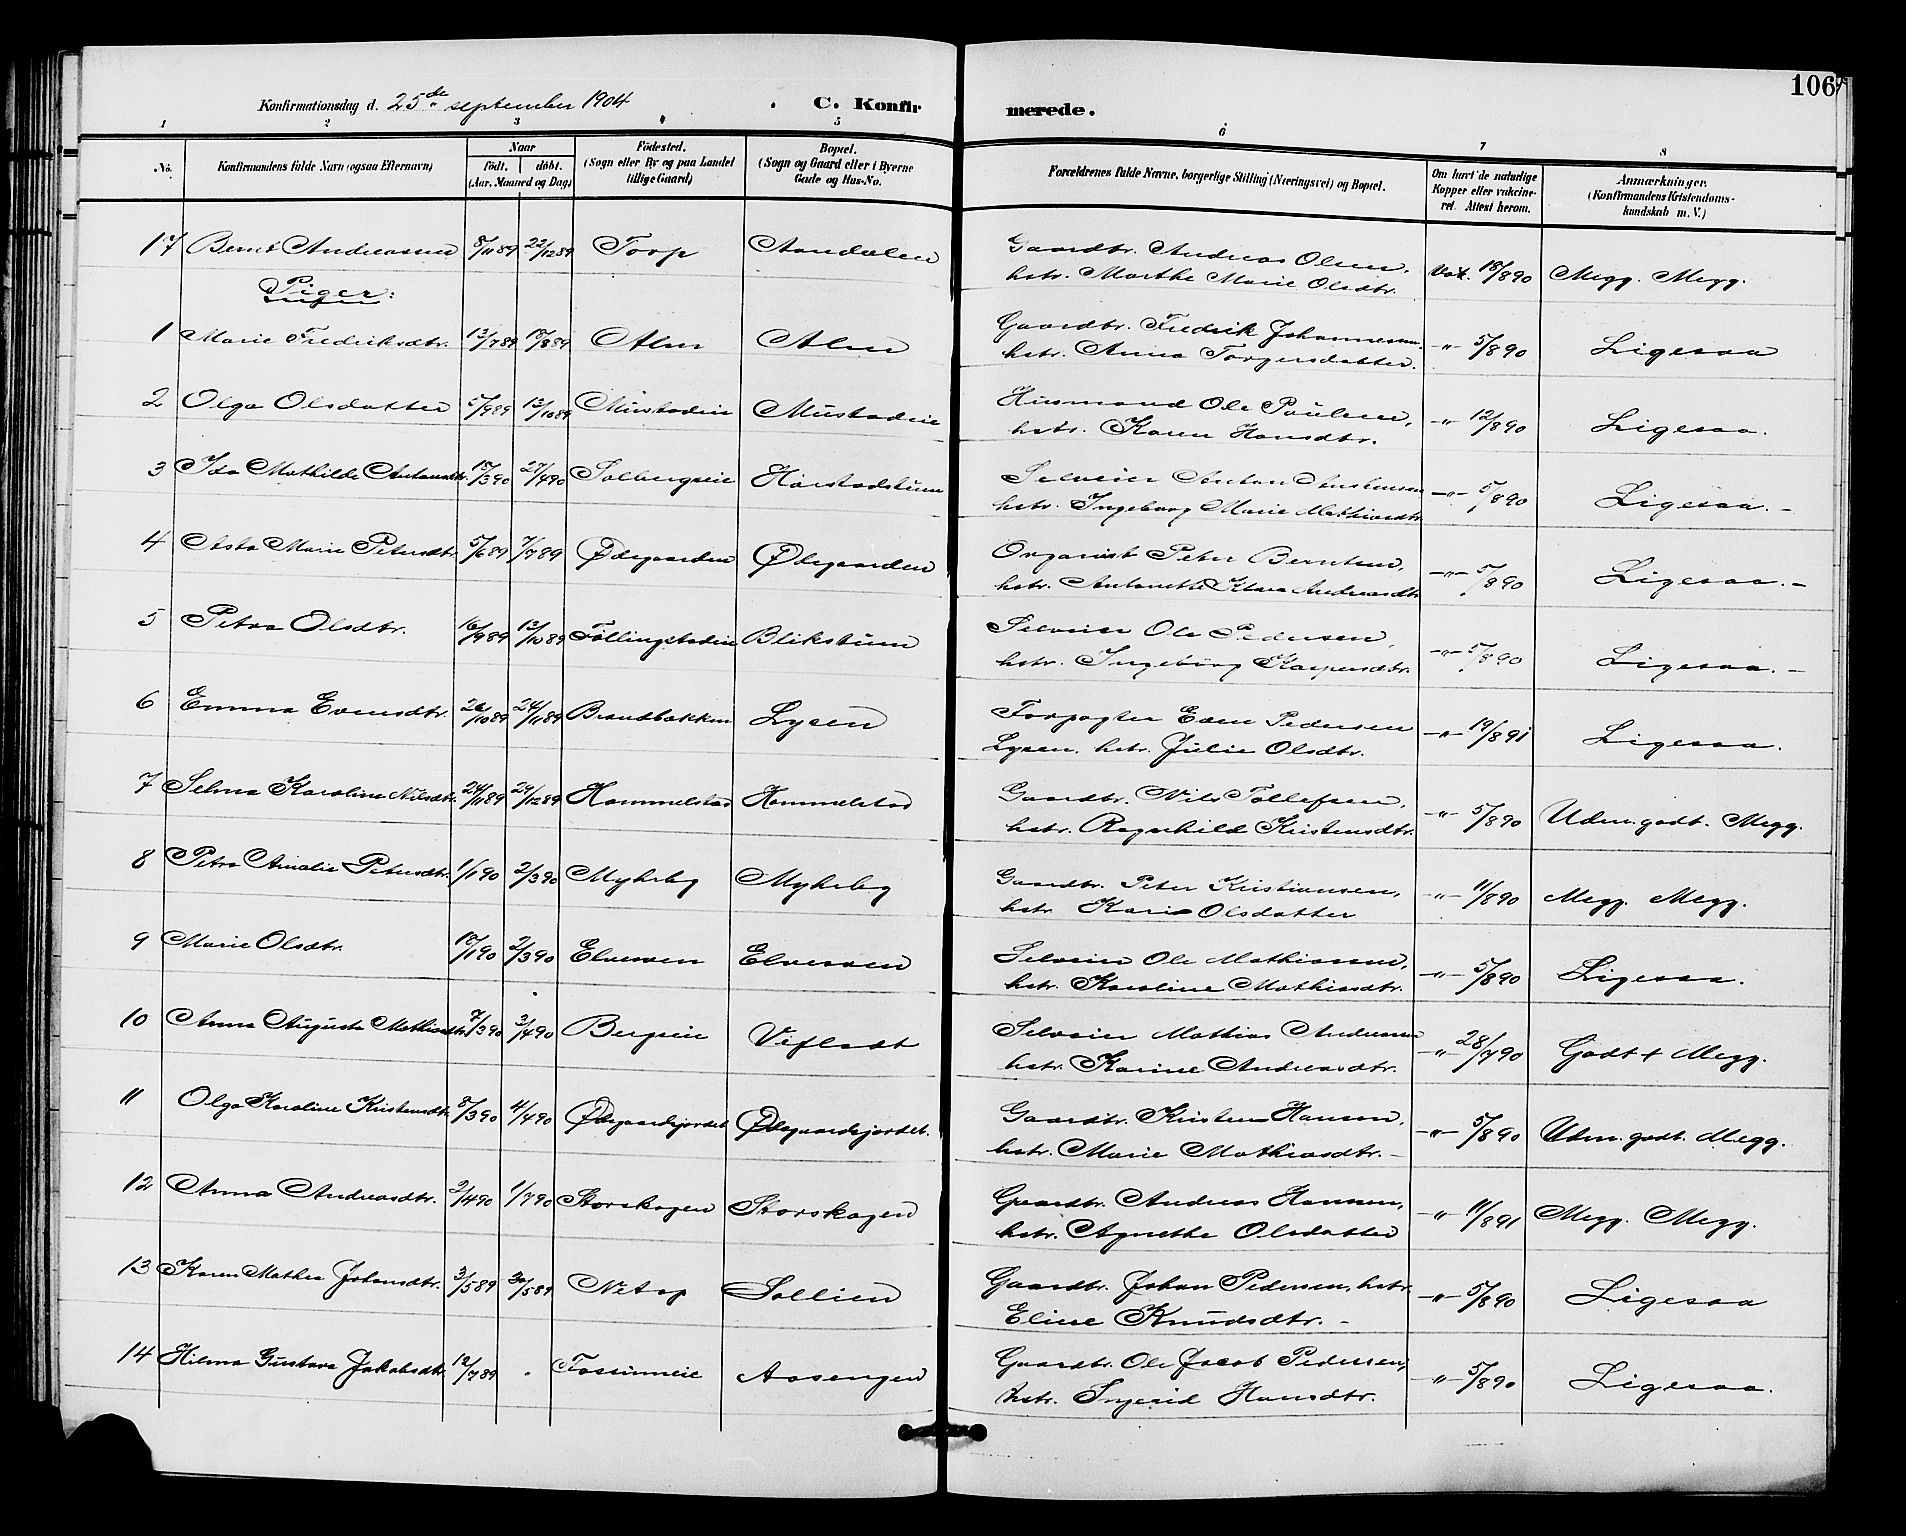 106
Konfirmationsdag d. 25de september 1904 C. Konfirmerede.
1 2 3 4 5 6 7 8
No. Konfirmandens fulde Navn (ogsaa Efternavn) Naar født. døbt. (Aar. Maaned og Dag) Fødested. (Sogn eller By og paa Landet tillige Gaard) Bopæl. (Sogn og Gaard eller i Byerne Gade og Hus-No. Forældrenes fulde Navne, borgerlige Stilling (Næringsvei) og Bopæl. Om havt de naturlige Kopper eller vakcineret. Attest herom. Anmærkninger. (Konfirmandens Kristendomskundskab m. V.)
17 Bernt Andreassen 8/11 89 22/12 89 Torp Aandalen Gaardbr. Andreas Olsen, hstr. Marthe Marie Olsdtr. Vax. 18/8 90 Megg. Megg.
Piger:
1 Marie Fredriksdtr. 13/7 89 18/8 89 Alm Alm Gaardbr. Fredrik Johannesen, hstr. Anna Torgersdatter. -"- 5/8 90 Ligesaa
2 Olga Olsdatter 5/9 89 13/10 89 Mustadeie Mustadeie Husmand Ole Paulsen, hstr. Karen Hansdtr. -"- 12/8 90 Ligesaa.
3 Ida Mathilde Antonsdtr. 15/3 90 27/4 90 Solbergseie Hørstadstuen Selveier Anton Christensen hstr. Ingeborg Marie Mathiasdtr -"- 5/8 90 Ligesaa.-
4 Asta Marie Petersdtr. 5/6 89 7/7 89 Ødegaarden Ødegaarden Organist Peter Berntsen, hstr. Antonette Klara Andreasdtr -"- 5/8 90 Ligesaa.-
5 Petra Olsdtr. 16/9 89 13/10 89 Føllingstadeie Blikstuen Selveier Ole Pedersen, hstr. Ingeborg Kaspersdtr. -"- 5/8 90 Ligesaa.-
6 Emma Evensdtr. 26/10 89 24/11 89 Brandbakken Lysen Forpagter Even Pedersen Lysen, hstr. Julie Olsdtr. -"- 19/8 91 Ligesaa.
7 Selma Karoline Nilsdtr. 24/11 89 29/12 89 Hammelstad Hammelstad Gaardbr. Nils Tollefsen, hstr. Ragnhild Kristensdtr. -"- 5/8 90 Udm. godt. Megg.
8 Petra Amalie Petersdtr. 1/1 90 2/3 90 Myhrby Myhrby Gaardbr. Peter Kristiansen, hstr Kari Olsdatter -"- 11/8 90 Megg. Megg.
9 Marie Olsdtr. 18/1 90 2/3 90 Elvesven Elvesven Selveier Ole Mathiassen, hstr. Karoline Mathiasdtr. -"- 5/8 90 Ligesaa.
10 Anna Augusta Mathiasdtr. 7/3 90 3/4 90 Bergseie Vefladt Selveier Mathias Andreassen hstr. Karine Andreasdtr. -"- 28/7 90 Godt + Megg.
11 Olga Karoline Kristensdtr. 8/3 90 4/4 90 Ødegaardsjordet Ødegaardsjordet. Gaardbr. Kristen Hansen, hstr. Marie Mathiasdtr.- -"- 5/8 90 Udm. godt. Megg.
12 Anna Andreasdtr. 2/4 90 1/7 90 Storskogen Storskogen Gaardbr. Andreas Hansen, hstr. Agnethe Olsdatter -"- 11/8 91 Megg. Megg.
13 Karen Mathea Johansdtr. 3/5 89 30/5 89 Netop Sollien Gaardbr. Johan Pedersen, hstr. Eline Knudsdtr.- -"- 5/8 90 Ligesaa
14 Hilma Gustava Jakobsdtr. 12/7 89 Fossumeie Aasengen Gaardbr. Ole Jacob Pedersen, hstr. Ingerid Hansdtr. -"- 5/8 90 Ligesaa.